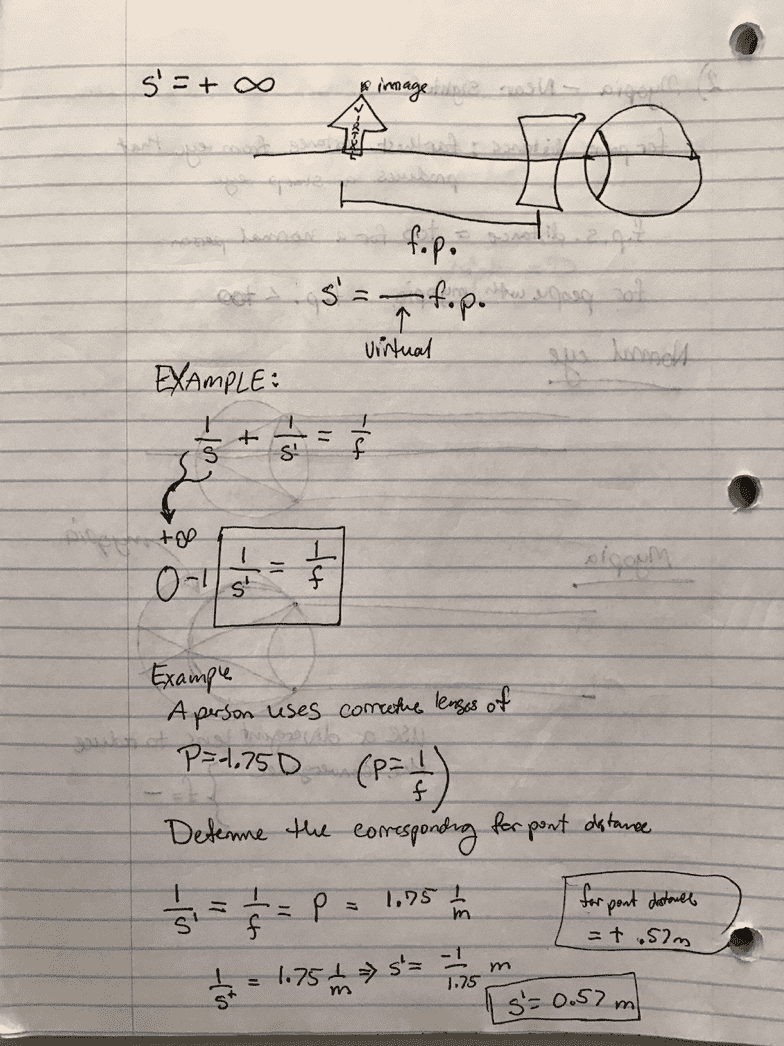 s' = + ∞
image
VIRTUAL
f.p.
s' = — f.p.
virtual
EXAMPLE:
1/s + 1/s' = 1/f
+∞
0 -1
1/s' = 1/f
Example
A person uses corrective lenses of
P=-1.75 D (P=1/f)
Determine the corresponding far point distance
1/s' = 1/f = P = 1.75 1/m
far point distance
= + .57m
1/s' = 1.75 1/m ⇒ s' = -1/1.75 m
s' = 0.57 m